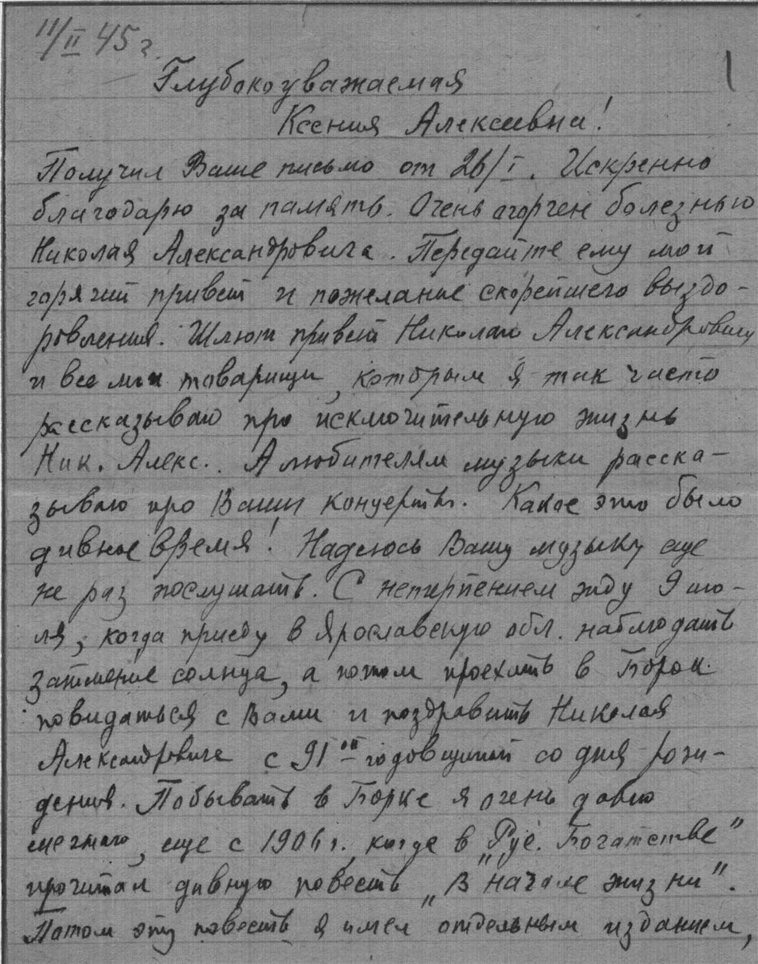 11/II 45 г.
1
Глубокоуважаемая
Ксения Алексеевна!
Получил Ваше письмо от 26/I. Искренно
благодарю за память. Очень огорчен болезнью
Николая Александровича. Передайте ему мой
горячий привет и пожелание скорейшего выздо-
ровления. Шлют привет Николаю Александровичу
и все мои товарищи, которым я так часто
рассказываю про исключительную жизнь
Ник. Алекс.. А любителям музыки расска-
зываю про Ваши концерты. Какое это было
дивное время! Надеюсь Вашу музыку еще
не раз послушать. С нетерпением жду 9 ию-
ля, когда приеду в Ярославскую обл. наблюдать
затмение солнца, а потом проехать в Борок
повидаться с Вами и поздравить Николая
Александровича с 91ой годовщиной со дня рож-
дения. Побывать в Борке я очень давно
мечтаю, еще с 1906 г., когда в „Рус. Богатстве"
прочитал дивную повесть „В начале жизни".
Потом эту повесть я имел отдельным изданием,